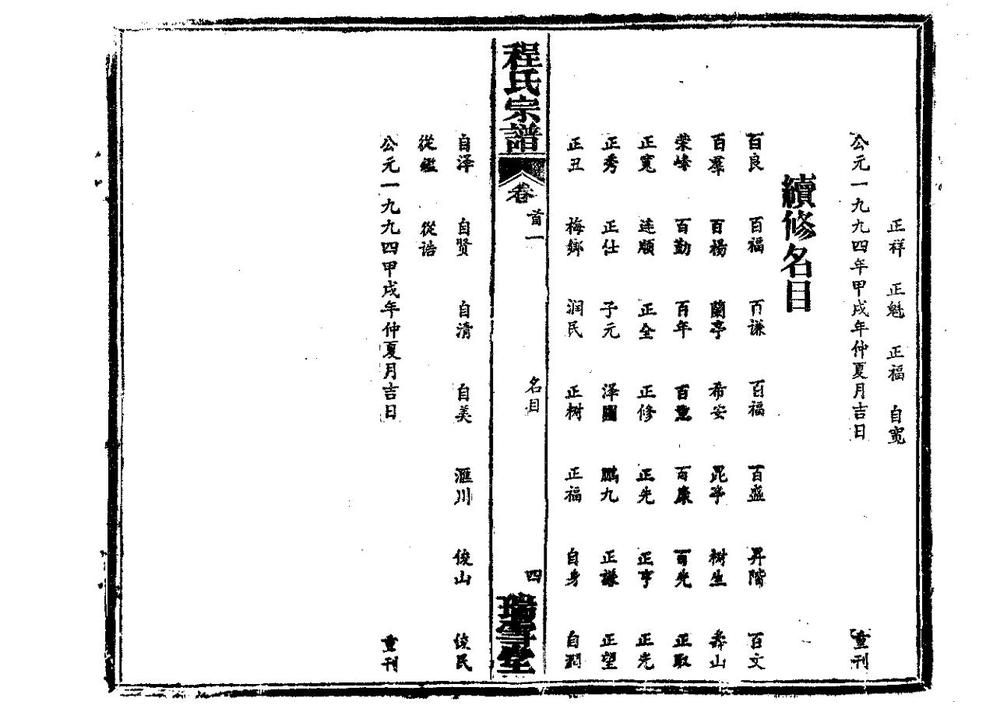 正祥 正魁 正福 自寬
公元一九九四年甲戌年仲夏月吉日 重刊
續修名目
百良 百福 百谦 百福 百盛 昇階 百文
百羣 百楊 蘭亭 希安 昆亭 树生 壽山
荣峰 百勤 百年 百萬 百康 百先 正取
正寬 连順 正全 正修 正先 正亨 正先
正秀 正仕 子元 泽國 鵬九 正謙 正望
正丑 梅鄉 润民 正树 正福 自身 自潤
程氏宗譜 卷首一 名目 四 瑞雪堂
自泽 自贤 自清 自美 滙川 俊山 俊民
從鑑 從诰
公元一九九四甲戌年仲夏月吉日 重刊